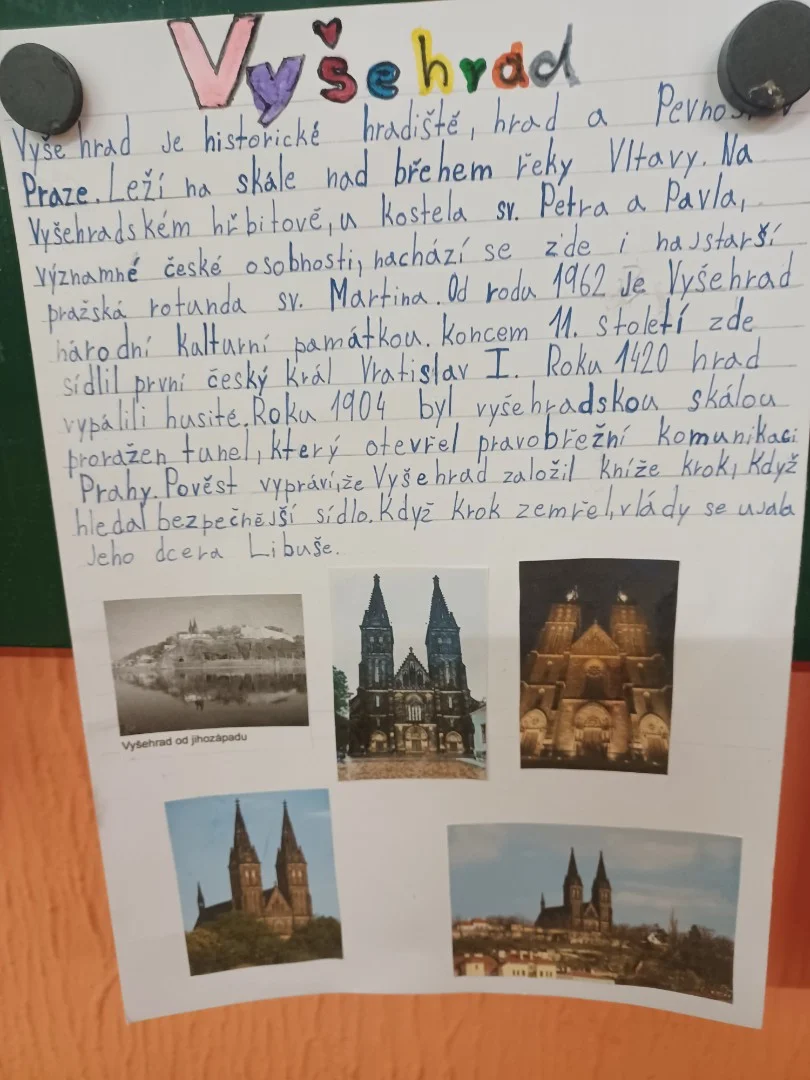 Vyšehrad
Vyšehrad je historické hradiště, hrad a Pevnos v
Praze. Leží na skále nad břehem řeky Vltavy. Na
Vyšehradském hřbitově, u kostela sv. Petra a Pavla,
významné české osobnosti, nachází se zde i najstarší
pražská rotunda sv. Martina. Od rodu 1962 je Vyšehrad
národní kulturní památkou. Koncem 11. století zde
sídlil první český král Vratislav I. Roku 1420 hrad
vypálili husité. Roku 1904 byl vyšehradskou skálou
proražen tunel, který otevřel pravobřežní komunikaci
Prahy. Pověst vypráví, že Vyšehrad založil kníže krok, Když
hledal bezpečnější sídlo. Když krok zemřel, vlády se ujala
jeho dcera Libuše.
Vyšehrad od jihozápadu